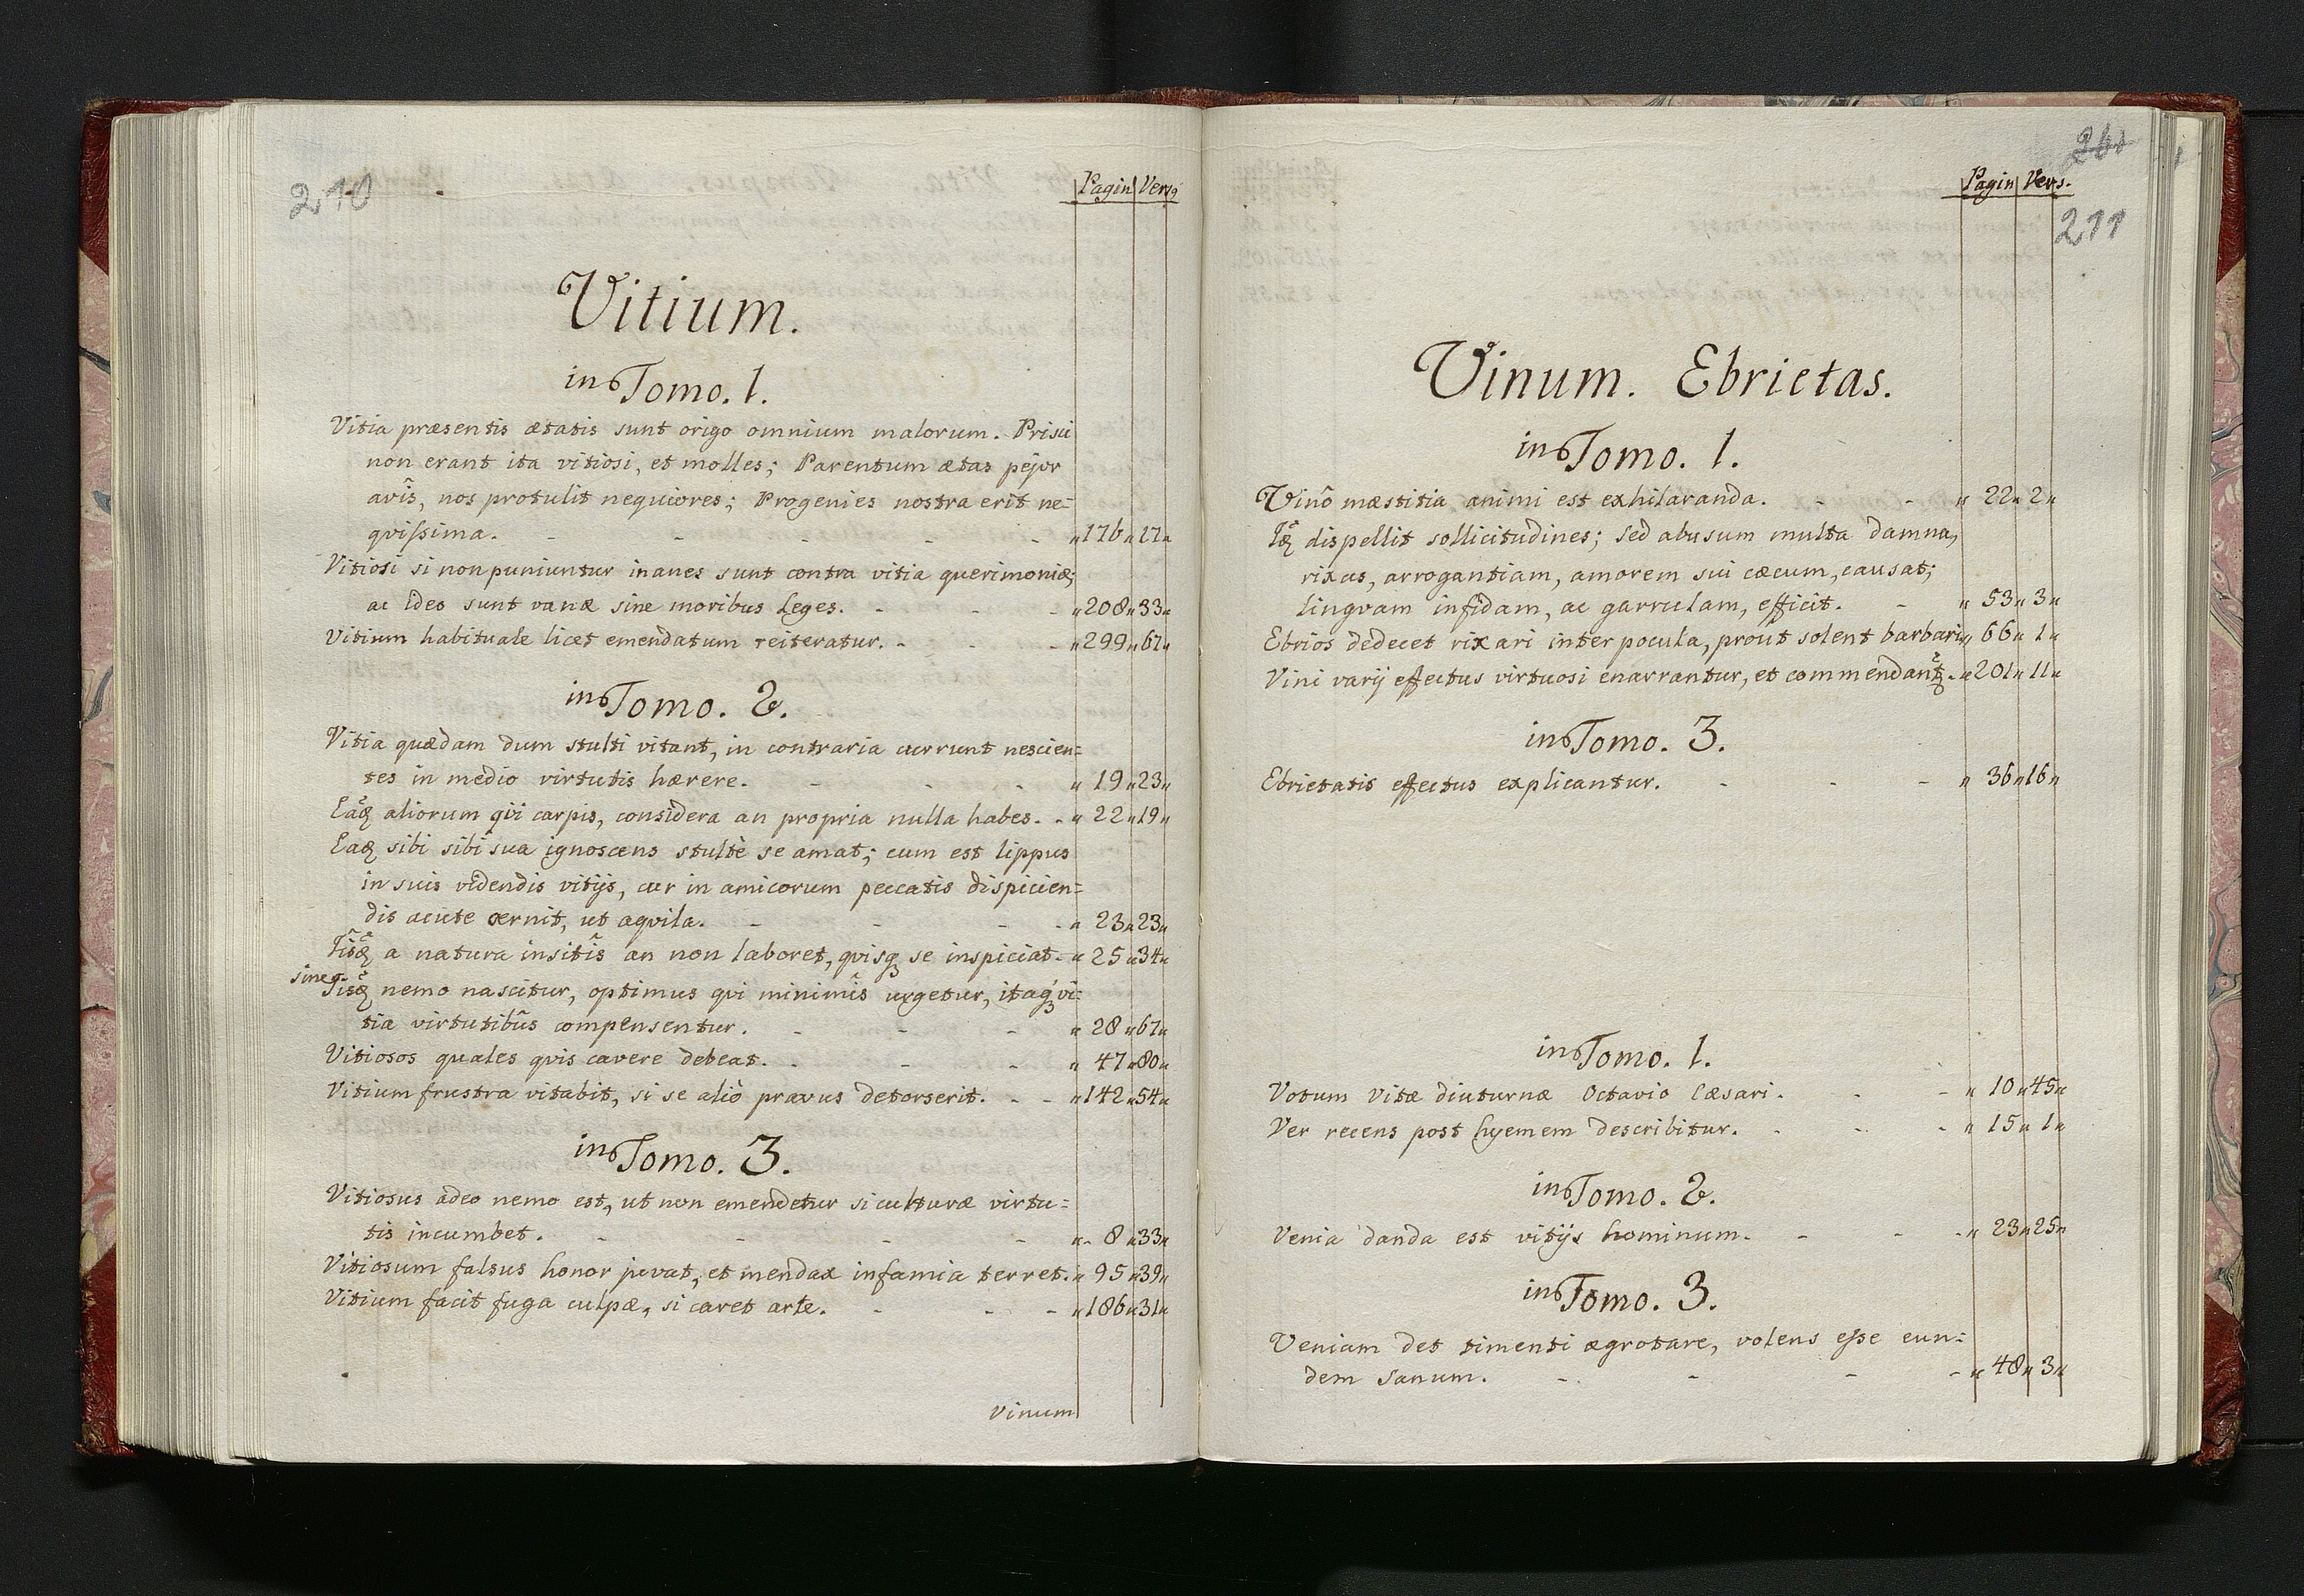 210
Pagin Versꝰ
Vitium.
in Tomo. 1.
Vitia præsentis ætatis sunt origo omnium malorum. Prisci
non erant ita vitiosi, et molles; Parentum ætas pejor
avîs, nos protulit nequiores; Progenies nostra erit ne=
qvißima. - - - - - „176„17„
Vitiosi si non puniuntur inanes sunt contra vitia querimoniæ;
ac ideo sunt vanæ sine moribus Leges. - - - „208„33„
Vitium habituale licet emendatum reiteratur. - - - „299„67„
in Tomo. 2.
Vitia quædam dum stulti vitant, in contraria currunt nescien=
tes in medio virtutis hærere. - - - „ 19„23„
Eaꝗ̃ aliorum qvi carpis, considera an propria nulla habes. - „ 22„19„
Eaꝗ sibi sibi sua ignoscens stultè se amat; cum est lippus
in suis videndis vitijs, cur in amicorum peccatis dispicien=
dis acute cernit, ut aqvila. - - - - „ 23„23„
Iîsꝗ̃ a natura insitîs an non laboret, qvisꝗ se inspiciat. „ 25„34„
sine Iisꝗ̃ nemo nascitur, optimus qvi minimîs urgetur, itaꝗ vi=
tia virtutibûs compensentur. - - - „ 28„67„
Vitiosos quales qvis cavere debeat. - - - „ 47„80„
Vitium frustra vitabit, si se aliò pravus detorserit. - - „142„54„
in Tomo. 3.
Vitiosus adeo nemo est, ut non emendetur si culturæ virtu=
tis incumbet. - - - - „- 8„33„
Vitiosum falsus honor juvat, et mendax infamia terret. „ 95„39„
Vitium facit fuga culpæ, si caret arte. - - - „186„31„
Vinum
Pagin Vers.
211
Vinum. Ebrietas.
in Tomo. 1.
Vinô mæstitia animi est exhilaranda. - - „ 22„ 2„
Iꝗ̃ dispellit sollicitudines; sed abusum multa damna,
rixas, arrogantiam, amorem sui cæcum, causat;
lingvam infidam, ac garrulam, efficit. - „ 53„ 3„
Ebrios dedecet rixari inter pocula, prout solent barbari „ 66„ 1„
Vini varij effectus virtuosi enarrantur, et commendantꝛ̃. „201„11„
in Tomo. 3.
Ebrietatis effectus explicantur. - - - „ 36„16„
in Tomo. 1.
Votum vitæ diuturnæ Octavio Cæsari. - - „ 10„45„
Ver recens post hyemem describitur. - - - „ 15„ 1„
in Tomo. 2.
Venia danda est vitijs hominum. - - - „ 23„25„
in Tomo. 3.
Veniam det timenti ægrotare, volens eße eun=
dem sanum. - - - - „ 48„ 3„